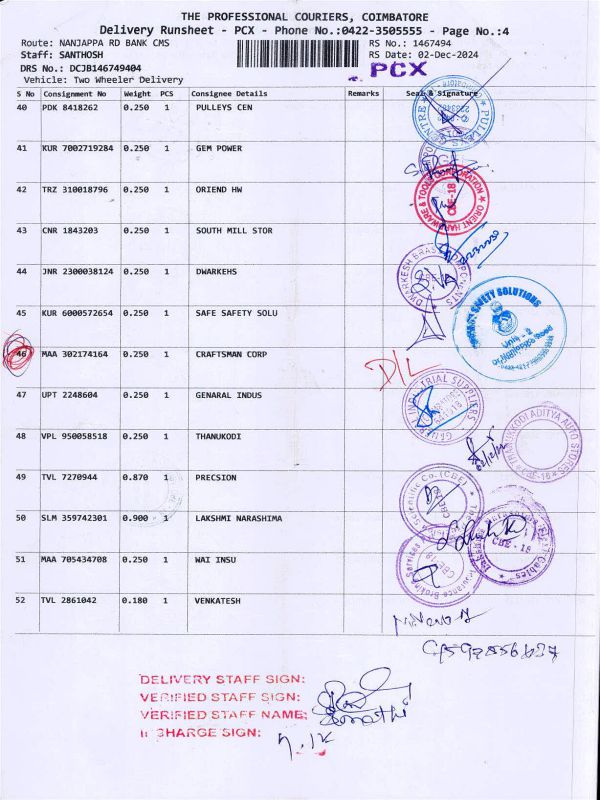 THE PROFESSIONAL COURIERS, COIMBATORE
Delivery Runsheet - PCX - Phone No.:0422-3505555 - Page No.:4
Route: NANJAPPA RD BANK CMS RS No.: 1467494
Staff: SANTHOSH RS Date: 02-Dec-2024
DRS No.: DCJB146749404 PCX
Vehicle: Two Wheeler Delivery
S No Consignment No Weight PCS Consignee Details Remarks Seal & Signature
40 PDK 8418262 0.250 1 PULLEYS CEN
41 KUR 7002719284 0.250 1 GEM POWER
42 TRZ 310018796 0.250 1 ORIEND HW
43 CNR 1843203 0.250 1 SOUTH MILL STOR
44 JNR 2300038124 0.250 1 DWARKEHS
45 KUR 6000572654 0.250 1 SAFE SAFETY SOLU
46 MAA 302174164 0.250 1 CRAFTSMAN CORP D/L
47 UPT 2248604 0.250 1 GENARAL INDUS
48 VPL 950058518 0.250 1 THANUKODI
49 TVL 7270944 0.870 1 PRECSION
50 SLM 359742301 0.900 1 LAKSHMI NARASHIMA
51 MAA 705434708 0.250 1 WAI INSU
52 TVL 2861042 0.180 1 VENKATESH
PULLEYS CENTRE
ORIENT HARDWARE & TOOLS CORPORATION
CBE-18
SAFETY SOLUTIONS
THANUKODI ADITYA AUTO STORES
CBE-18
CBE-18
DELIVERY STAFF SIGN:
VERIFIED STAFF SIGN:
VERIFIED STAFF NAME:
CHARGE SIGN: